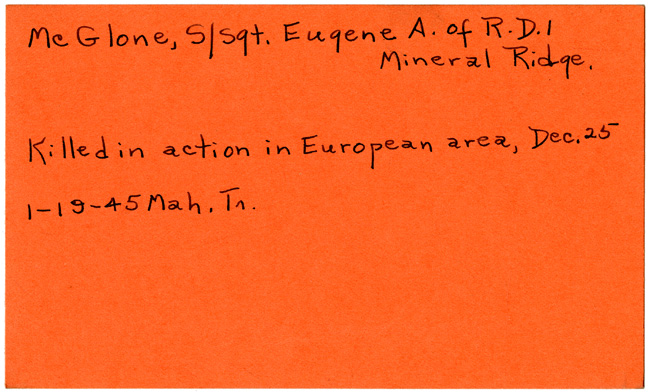 McGlone, S/Sgt. Eugene A. of R.D.1
Mineral Ridge.
Killed in action in European area, Dec. 25
1-19-45 Mah. Tr.